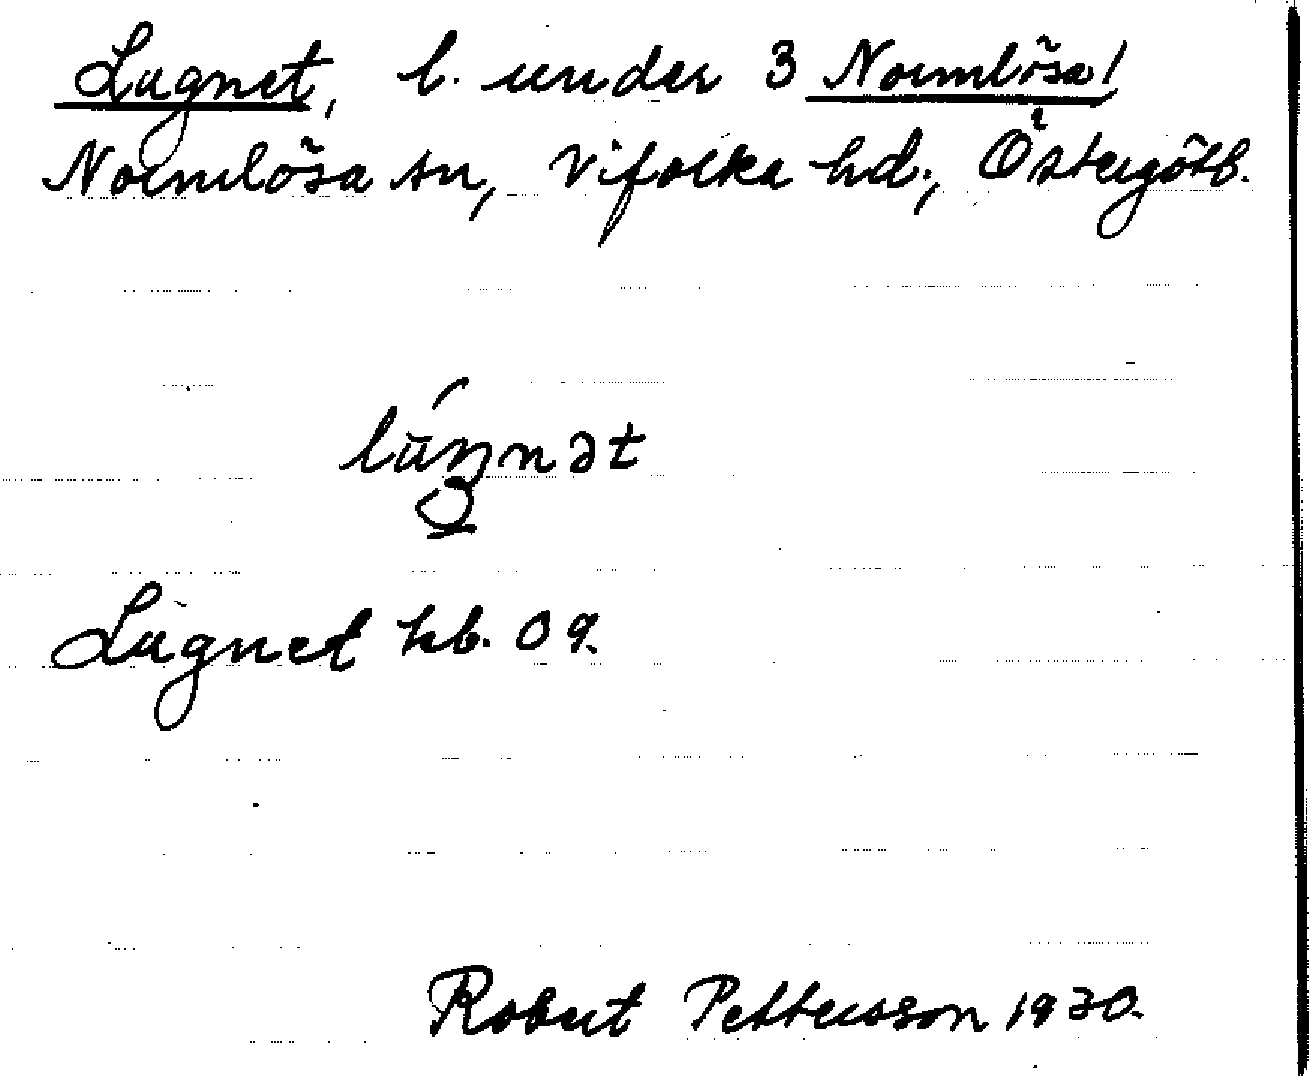 Lugnet, l. under 3 Normlösa!
Normlösa sn, Vifolka hd., Östergötl.
Lugnet kb. 09.
Robert Pettersson 1930.